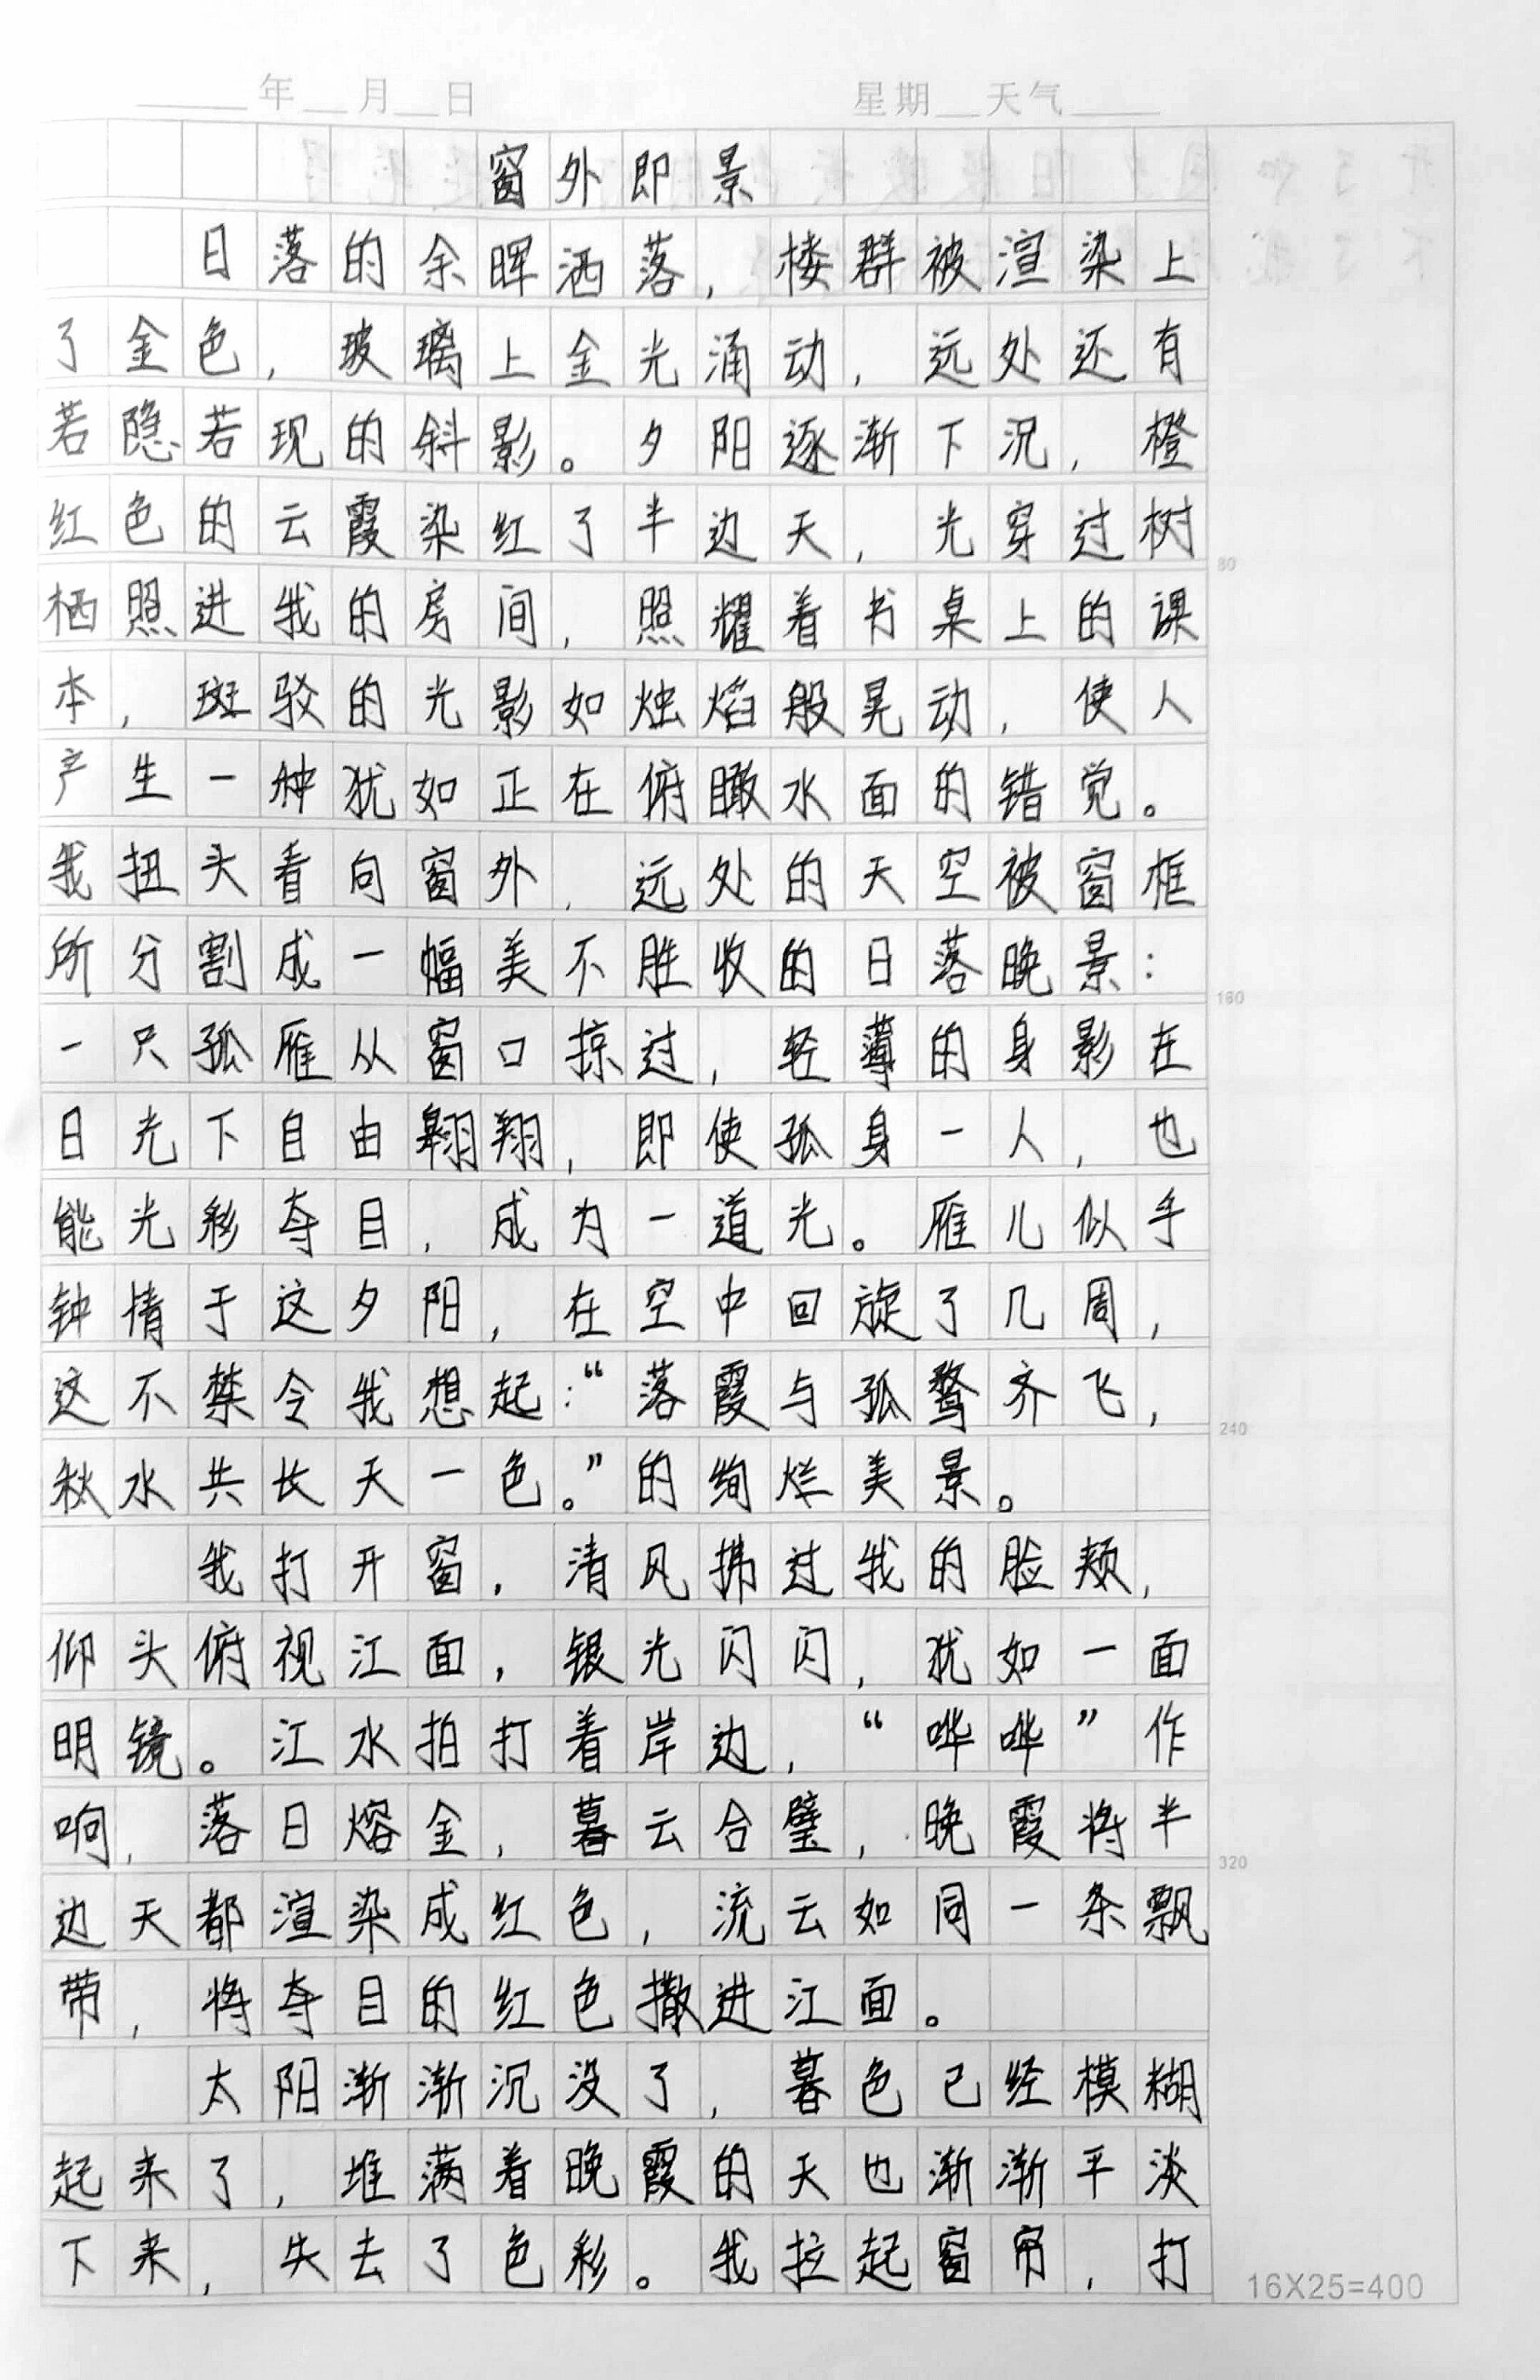 年 月 日 星期 天气
窗外即景
日落的余晖洒落，楼群被渲染上
了金色，玻璃上金光涌动，远处还有
若隐若现的斜影。夕阳逐渐下沉，橙
红色的云霞染红了半边天，光穿过树
栖照进我的房间，照耀着书桌上的课
本，斑驳的光影如烛焰般晃动，使人
产生一种犹如正在俯瞰水面的错觉。
我扭头看向窗外，远处的天空被窗框
所分割成一幅美不胜收的日落晚景：
一只孤雁从窗口掠过，轻薄的身影在
日光下自由翱翔，即使孤身一人，也
能光彩夺目，成为一道光。雁儿似乎
钟情于这夕阳，在空中回旋了几周，
这不禁令我想起：“落霞与孤鹜齐飞，
秋水共长天一色。”的绚烂美景。
我打开窗，清风拂过我的脸颊，
仰头俯视江面，银光闪闪，犹如一面
明镜。江水拍打着岸边，“哗哗”作
响，落日熔金，暮云合璧，晚霞将半
边天都渲染成红色，流云如同一条飘
带，将夺目的红色撒进江面。
太阳渐渐沉没了，暮色已经模糊
起来了，堆满着晚霞的天也渐渐平淡
下来，失去了色彩。我拉起窗帘，打
80
160
240
320
16X25=400